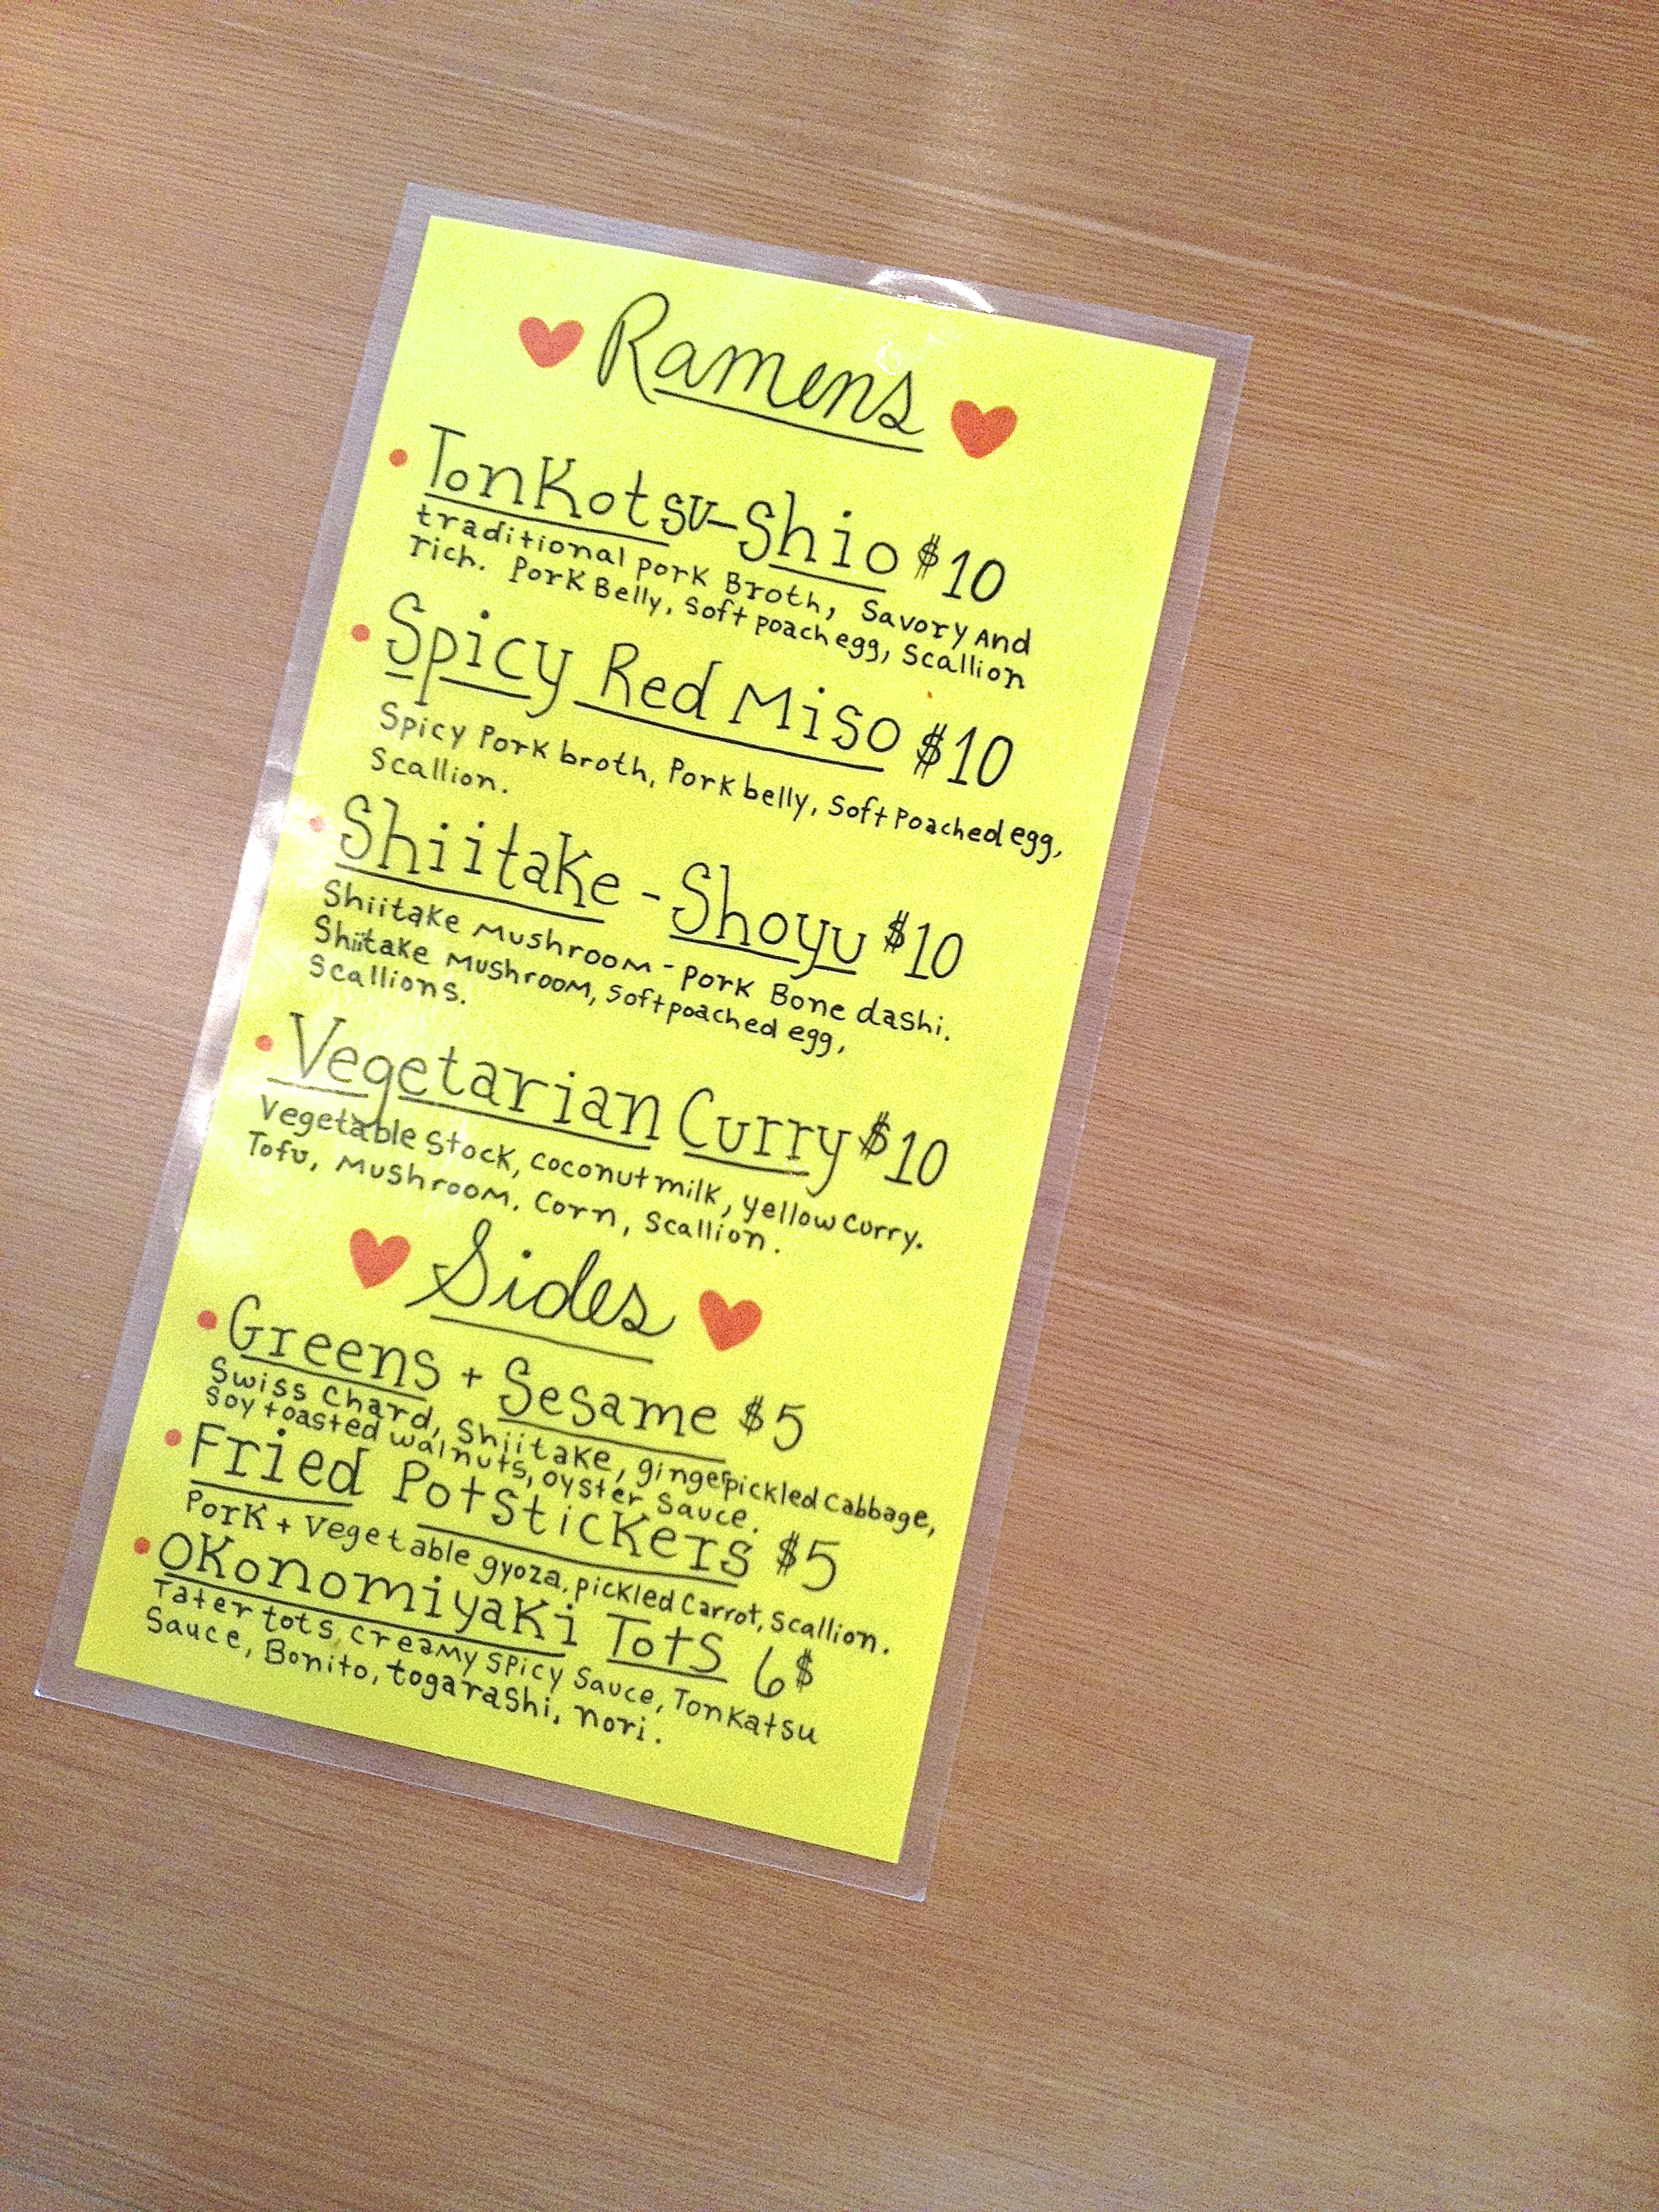 Ramens
Tonkotsu-Shio $10
traditional pork Broth, Savory And
rich. Pork Belly, Soft poach egg, Scallion
Spicy Red Miso $10
Spicy Pork broth, Pork belly, Soft Poached egg,
Scallion.
Shiitake - Shoyu $10
Shiitake Mushroom - Pork Bone dashi.
Shiitake Mushroom, Soft poached egg,
Scallions.
Vegetarian Curry $10
Vegetable Stock, Coconut milk, yellow Curry.
Tofu, Mushroom, Corn, Scallion.
Sides
Greens + Sesame $5
Swiss Chard, Shiitake, ginger pickled Cabbage,
Soy toasted walnuts, oyster Sauce.
Fried Potstickers $5
Pork + Vegetable gyoza, pickled Carrot, Scallion.
Okonomiyaki Tots 6$
Tater tots, creamy Spicy Sauce, Tonkatsu
Sauce, Bonito, togarashi, nori.